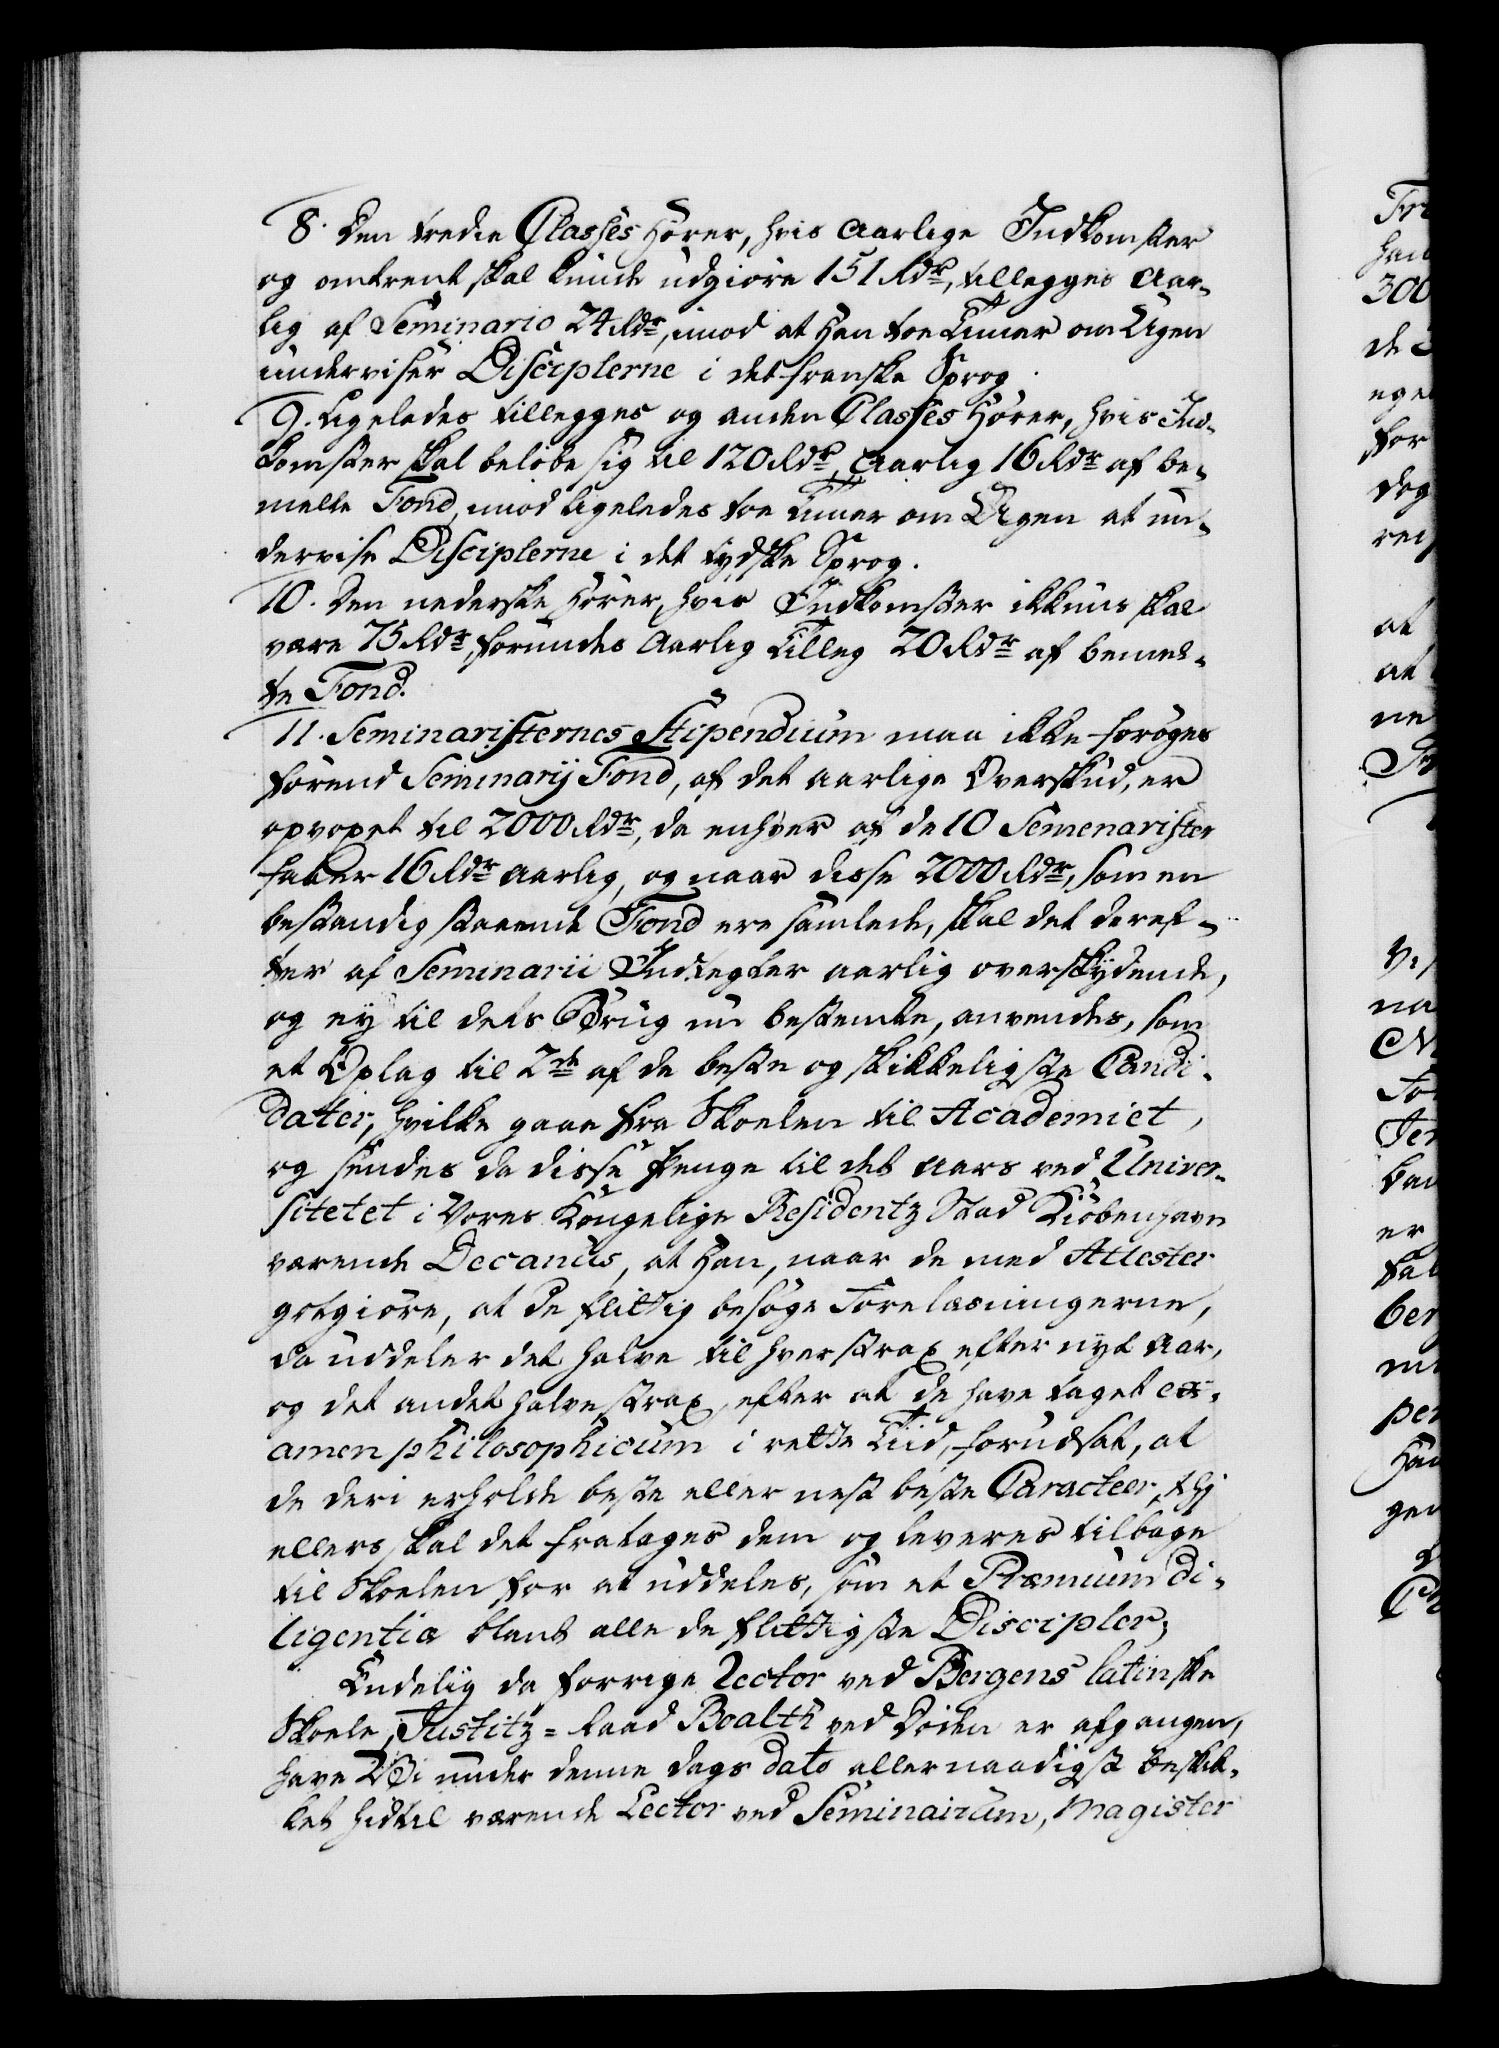 8. Den tredie Classes Hører, hvis aarlige Indkomster
og omtrent skal kunde udgiøre 151 Rdr, tillegges aar-
lig af Seminario 24 Rdr, imod at Han toe Timer om Ugen
underviser Disciplerne i det franske Sprog.
9. Ligeledes tillegges og anden Classes Hører, hvis Ind-
komster skal beløbe sig til 120 Rdr, aarlig 16 Rdr af be-
melte Fond, imod ligeledes toe Timer om Ugen at un-
dervise Disciplerne i det tydske Sprog.
10. Den nederste Hører, hvis Indkomster ikkuns skal
være 75 Rdr, forundes aarlig Tilleg 20 Rdr af bemel-
te Fond.
11. Seminaristernes Stipendium maa ikke forøges
førend Seminarij Fond, af det aarlige Overskud, er
opvoxet til 2000 Rdr, da enhver af de 10 Semenarister
faaer 16 Rdr aarlig, og naar disse 2000 Rdr, som en
bestandig staaende Fond ere samlede, skal det deref-
ter af Seminarii Indtegter aarlig overskydende,
og ey til dets Brug nu bestemte, anvendes, som
et Oplag til 2de af de beste og skikkeligste Candi-
dater, hvilke gaae fra Skoelen til Academiet,
og sendes da disse Penge til det Aars ved Univer-
sitetet i Vores Kongelige Residentz Stad Kiøbenhavn
værende Decanus, at Han, naar de med Attester
gotgiøre, at de flittig besøge Forelæsningerne,
da uddeler det halve til hver strax efter nyt Aar,
og det andet halve strax efter at de have taget ex-
amen philosophicum i rette Tiid, forudsat, at
de deri erholde beste eller nest beste Caracteer, thj
ellers skal det fratages dem og leveres tilbage
til Skoelen for at uddeles, som et Præmium di-
ligentiæ blant alle de flittigste Discipler;
Endelig da forrige Rector ved Bergens latinske
Skoele, Justitz-Raad Boalth ved Døden er afgangen,
have Wi under denne Dags dato allernaadigst beskik-
ket hidtil værende Lector ved Seminairum, Magister